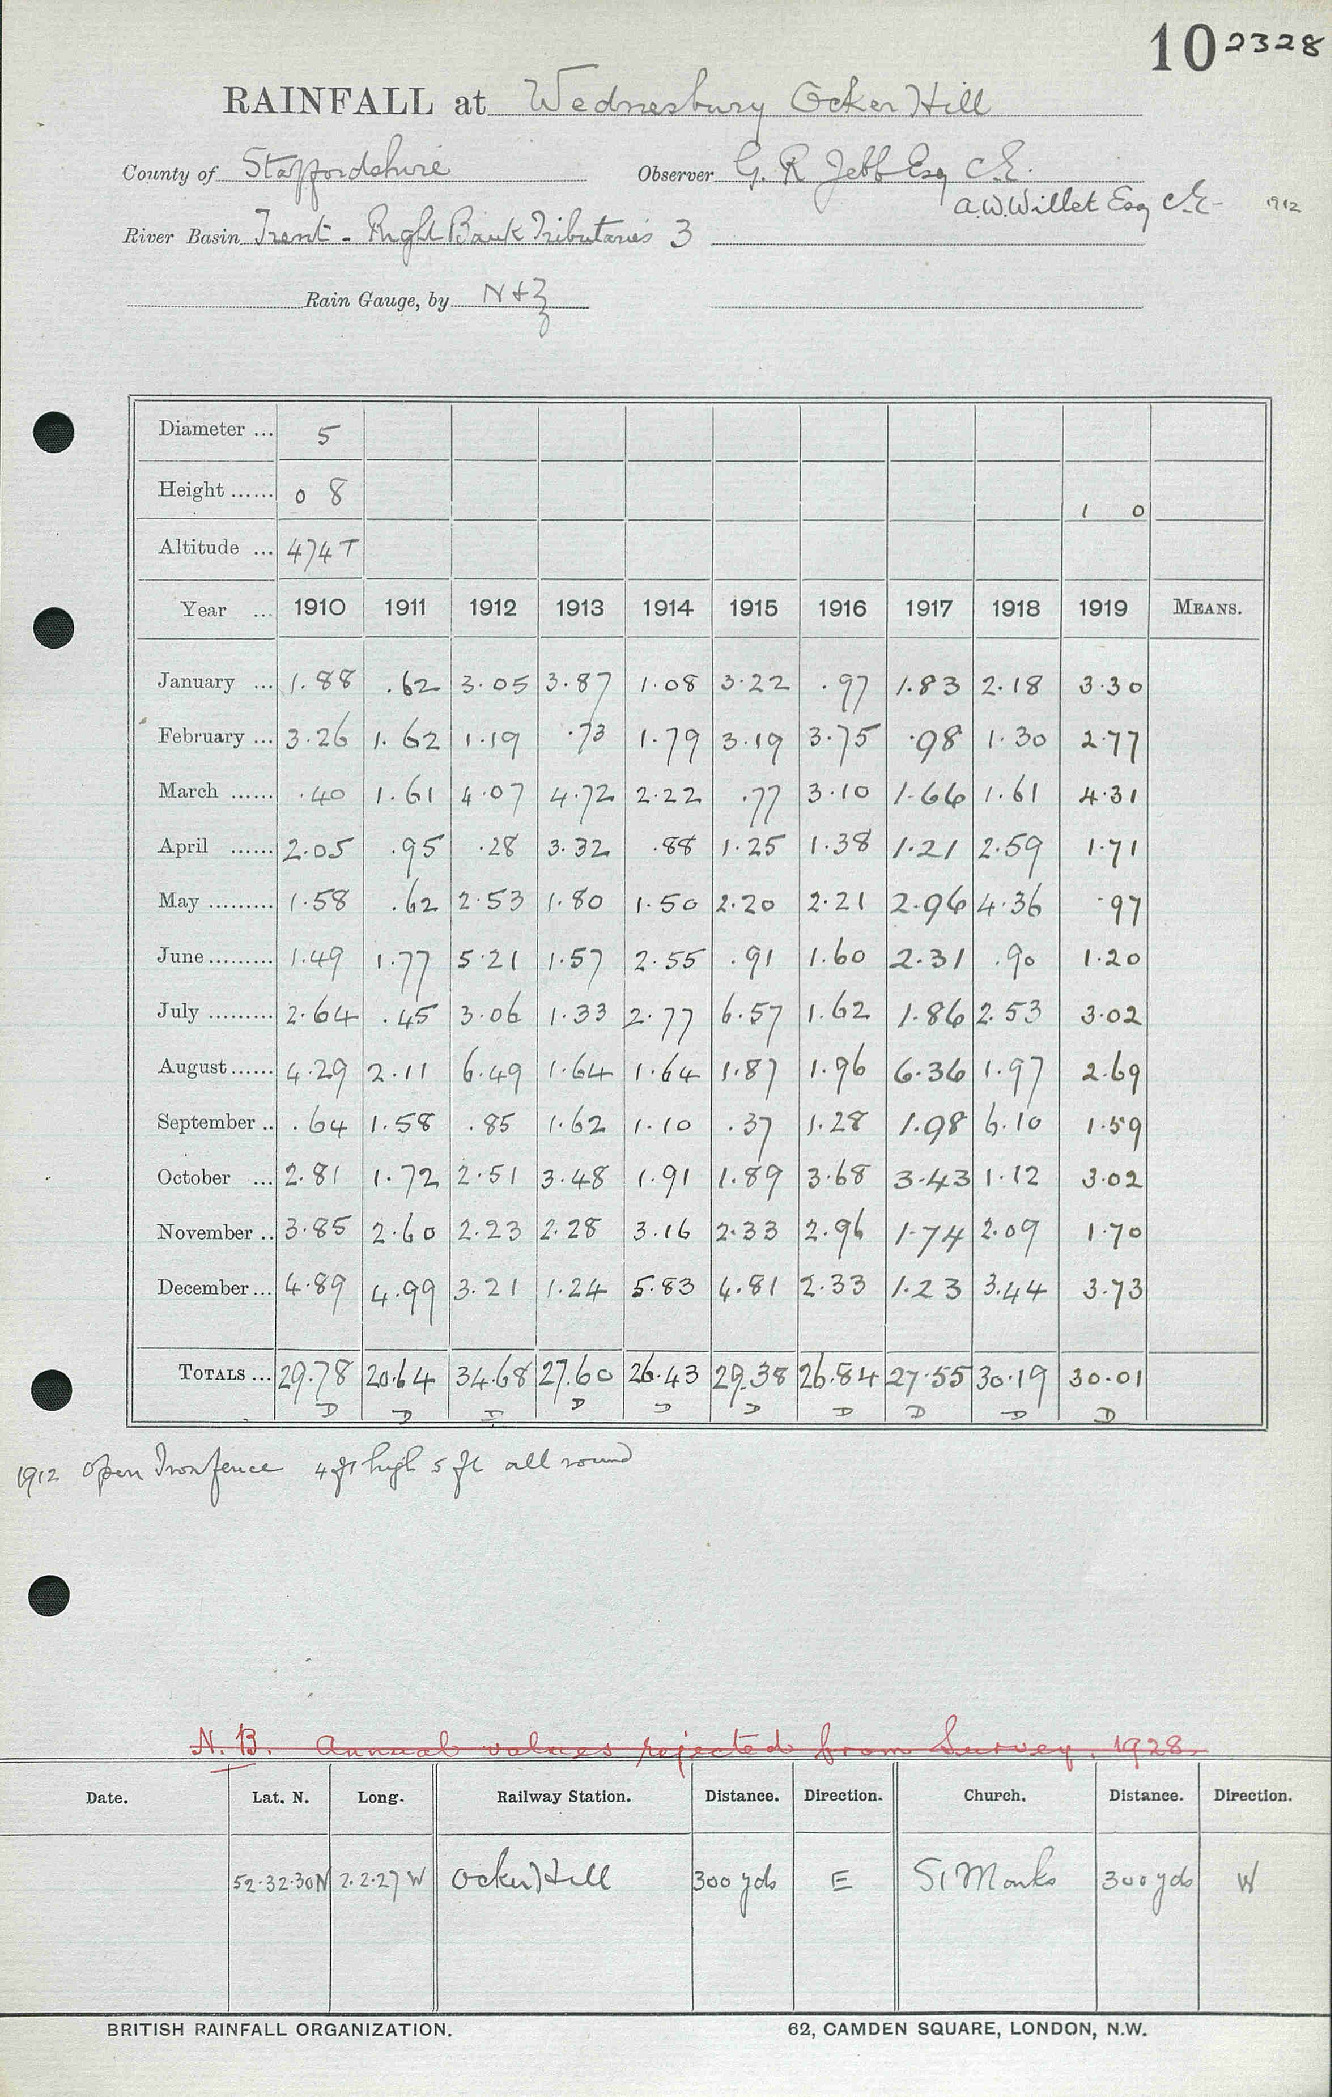 10 2328
RAINFALL at Wednesbury Ocker Hill
County of Staffordshire Observer G. R Jebb Esq C.E.
A.W. Willet Esq C.E- 1912
River Basin Trent - Right Bank Tributaries 3
Rain Gauge, by N & Z
Diameter ... 5
Height ...... 0 8 1 0
Altitude ... 474 T
Year ... 1910 1911 1912 1913 1914 1915 1916 1917 1918 1919 MEANS.
January ... 1.88 .62 3.05 3.87 1.08 3.22 .97 1.83 2.18 3.30
February ... 3.26 1.62 1.19 .73 1.79 3.19 3.75 .98 1.30 2.77
March ...... .40 1.61 4.07 4.72 2.22 .77 3.10 1.66 1.61 4.31
April ...... 2.05 .95 .28 3.32 .88 1.25 1.38 1.21 2.59 1.71
May ......... 1.58 .62 2.53 1.80 1.50 2.20 2.21 2.96 4.36 .97
June ......... 1.49 1.77 5.21 1.57 2.55 .91 1.60 2.31 .90 1.20
July ......... 2.64 .45 3.06 1.33 2.77 6.57 1.62 1.86 2.53 3.02
August ...... 4.29 2.11 6.49 1.64 1.64 1.87 1.96 6.36 1.97 2.69
September .. .64 1.58 .85 1.62 1.10 .37 1.28 1.98 6.10 1.59
October ... 2.81 1.72 2.51 3.48 1.91 1.89 3.68 3.43 1.12 3.02
November .. 3.85 2.60 2.23 2.28 3.16 2.33 2.96 1.74 2.09 1.70
December ... 4.89 4.99 3.21 1.24 5.83 4.81 2.33 1.23 3.44 3.73
TOTALS ... 29.78 20.64 34.68 27.60 26.43 29.38 26.84 27.55 30.19 30.01
D D D D D D D D D D
1912 Open Iron fence 4 ft high 5 ft all round
N.B. Annual values rejected from Survey. 1928.
Date. Lat. N. Long. Railway Station. Distance. Direction. Church. Distance. Direction.
52.32.30N 2.2.27 W Ocker Hill 300 yds E St Marks 300 yds W
BRITISH RAINFALL ORGANIZATION. 62, CAMDEN SQUARE, LONDON, N.W.